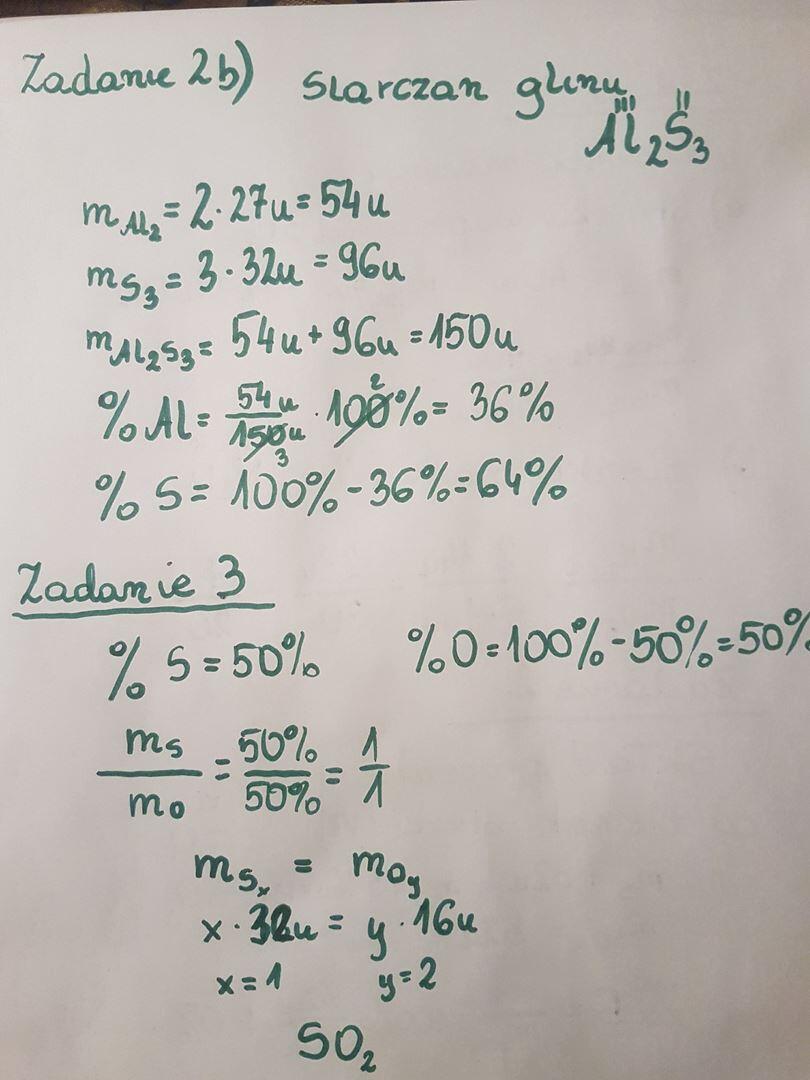 Zadanie 2b) siarczan glinu
Al₂S₃
m Al₂ = 2·27u = 54u
m S₃ = 3·32u = 96u
m Al₂S₃ = 54u + 96u = 150u
% Al = 54u/150u · 100% = 36%
2
3
% S = 100% - 36% = 64%
Zadanie 3
% S = 50% % O = 100% - 50% = 50%
mS/mO = 50%/50% = 1/1
m Sₓ = m Oy
x·32u = y·16u
x = 1 y = 2
SO₂